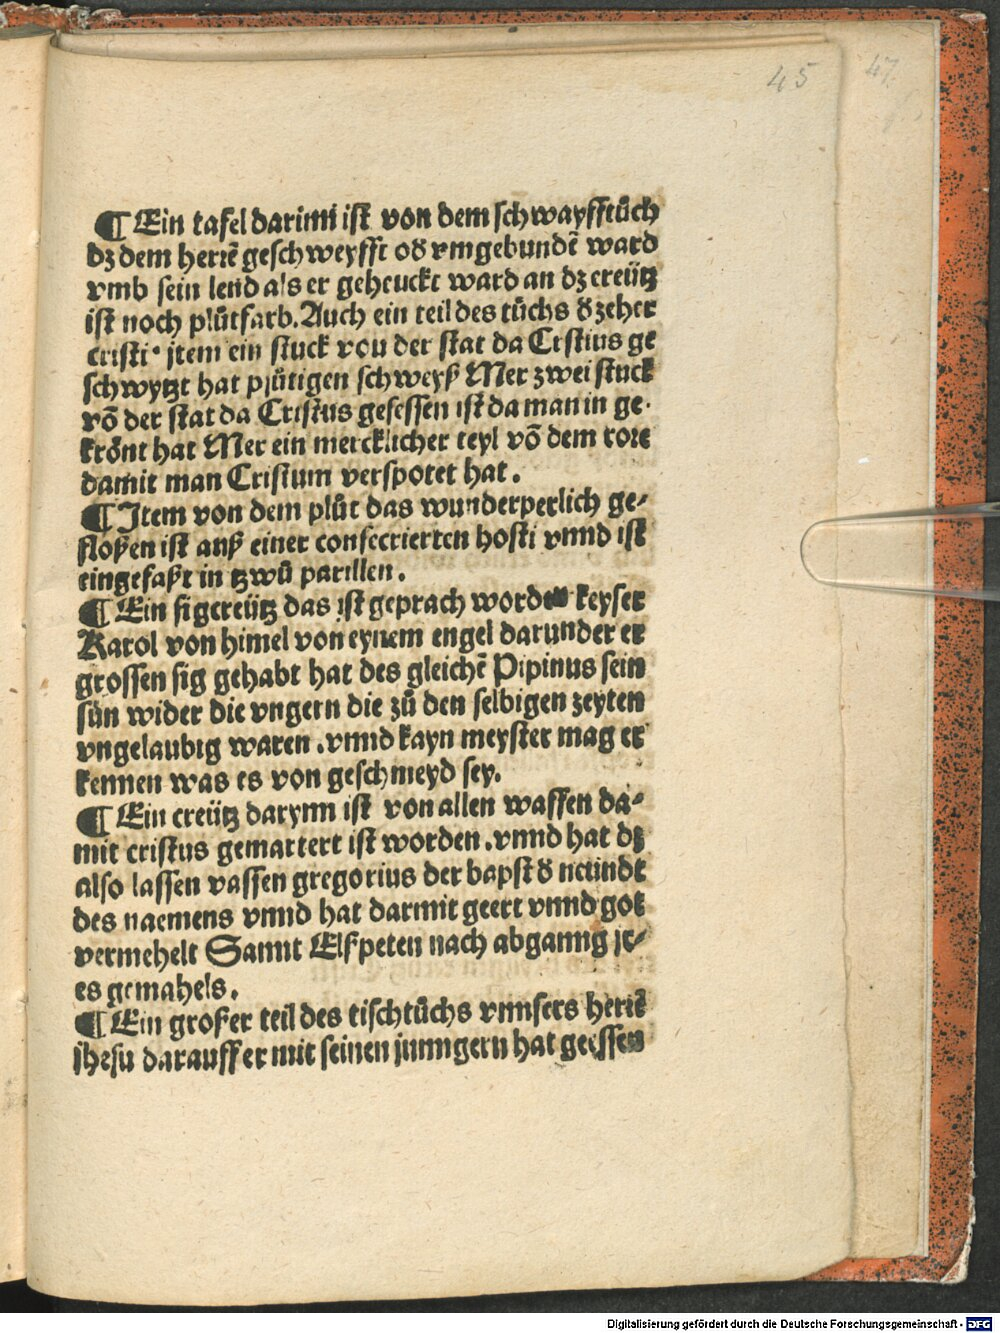 45
47.
¶ Ein tafel darinn ist von dem schwayfftůch
dz dem herrē geschweyfft oď vmgebundē ward
vmb sein lend als er gehenckt ward an dz creütz
ist noch plůtfarb. Auch ein teil des tůchs ď zeher
cristi. jtem ein stuck vou der stat da Cristius ge
schwytzt hat plůtigen schweyß Mer zwei stuck
vō der stat da Cristus gesessen ist da man in ge-
krönt hat Mer ein mercklicher teyl vō dem rore
damit man Cristum verspotet hat.
¶ Item von dem plůt das wunderperlich ge-
floßen ist anß einer consecrierten hosti vnnd ist
eingefaßt in tzwů parillen.
¶ Ein sigcreütz das ist geprach worden keyser
Karol von himel von eynem engel darunder er
grossen sig gehabt hat des gleichē Pipinus sein
sün wider die vngern die zů den selbigen zeyten
vngelaubig waren. vnnd kayn meyster mag er
kennen was es von geschmeyd sey.
¶ Ein creütz darynn ist von allen waffen da-
mit cristus gemartert ist worden. vnnd hat dz
also lassen vassen gregorius der bapst ď neündt
des naemens vnnd hat darmit geert vnnd got
vermehelt Sannt Elspeten nach abganng jr-
es gemahels.
¶ Ein großer teil des tischtůchs vnnsers herrē
jhesu darauff er mit seinen junngern hat geessen
Digitalisierung gefördert durch die Deutsche Forschungsgemeinschaft - DFG